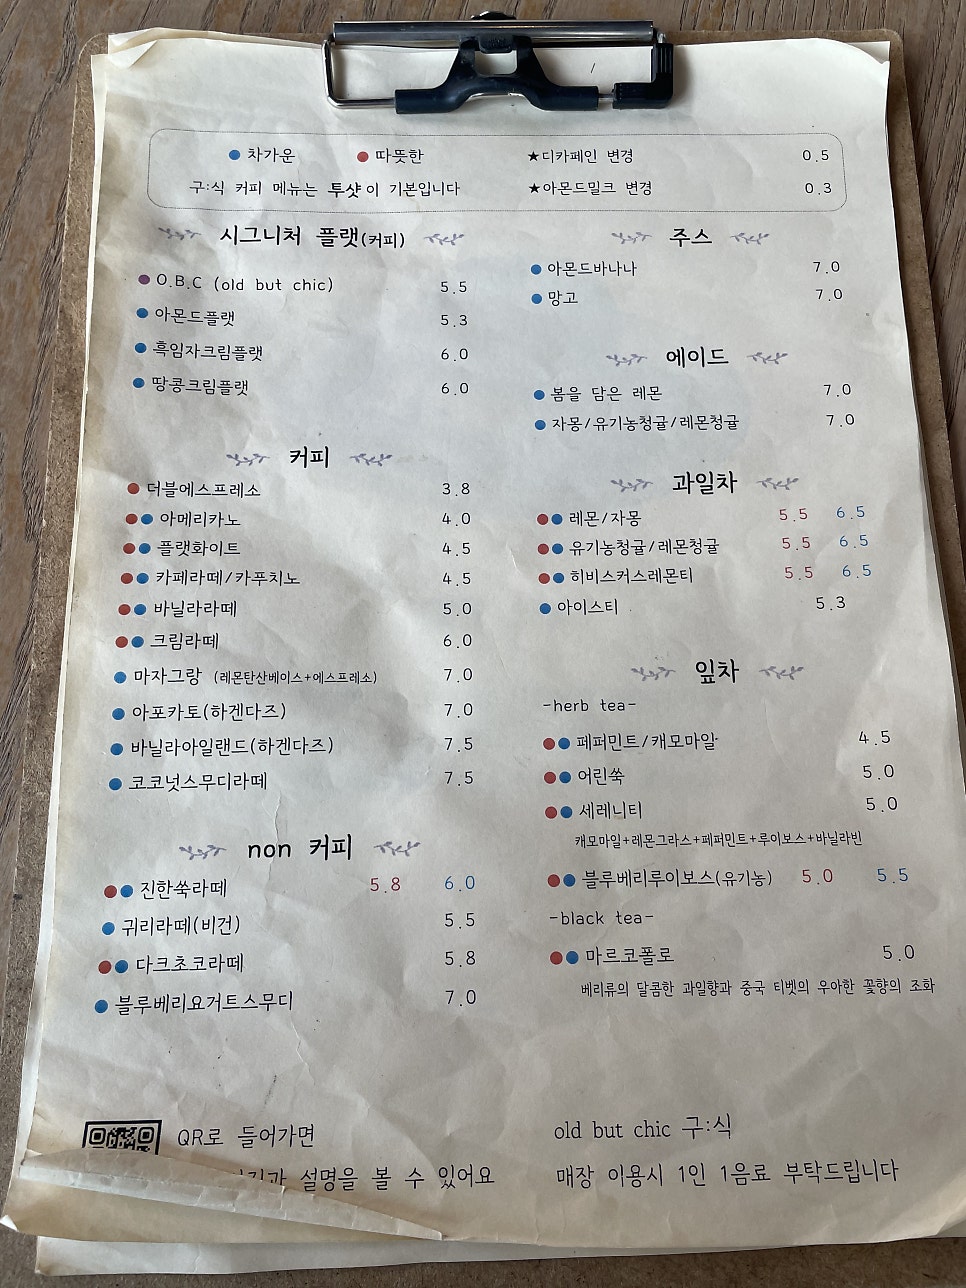 차가운 따뜻한 ★디카페인 변경 0.5
구:식 커피 메뉴는 투샷이 기본입니다 ★아몬드밀크 변경 0.3
시그니처 플랫(커피)
O.B.C (old but chic) 5.5
아몬드플랫 5.3
흑임자크림플랫 6.0
땅콩크림플랫 6.0
커피
더블에스프레소 3.8
아메리카노 4.0
플랫화이트 4.5
카페라떼/카푸치노 4.5
바닐라라떼 5.0
크림라떼 6.0
마자그랑 (레몬탄산베이스+에스프레소) 7.0
아포카토(하겐다즈) 7.0
바닐라아일랜드(하겐다즈) 7.5
코코넛스무디라떼 7.5
non 커피
진한쑥라떼 5.8 6.0
귀리라떼(비건) 5.5
다크초코라떼 5.8
블루베리요거트스무디 7.0
QR로 들어가면
설명을 볼 수 있어요
주스
아몬드바나나 7.0
망고 7.0
에이드
봄을 담은 레몬 7.0
자몽/유기농청귤/레몬청귤 7.0
과일차
레몬/자몽 5.5 6.5
유기농청귤/레몬청귤 5.5 6.5
히비스커스레몬티 5.5 6.5
아이스티 5.3
잎차
-herb tea-
페퍼민트/캐모마일 4.5
어린쑥 5.0
세레니티 5.0
캐모마일+레몬그라스+페퍼민트+루이보스+바닐라빈
블루베리루이보스(유기농) 5.0 5.5
-black tea-
마르코폴로 5.0
베리류의 달콤한 과일향과 중국 티벳의 우아한 꽃향의 조화
old but chic 구:식
매장 이용시 1인 1음료 부탁드립니다